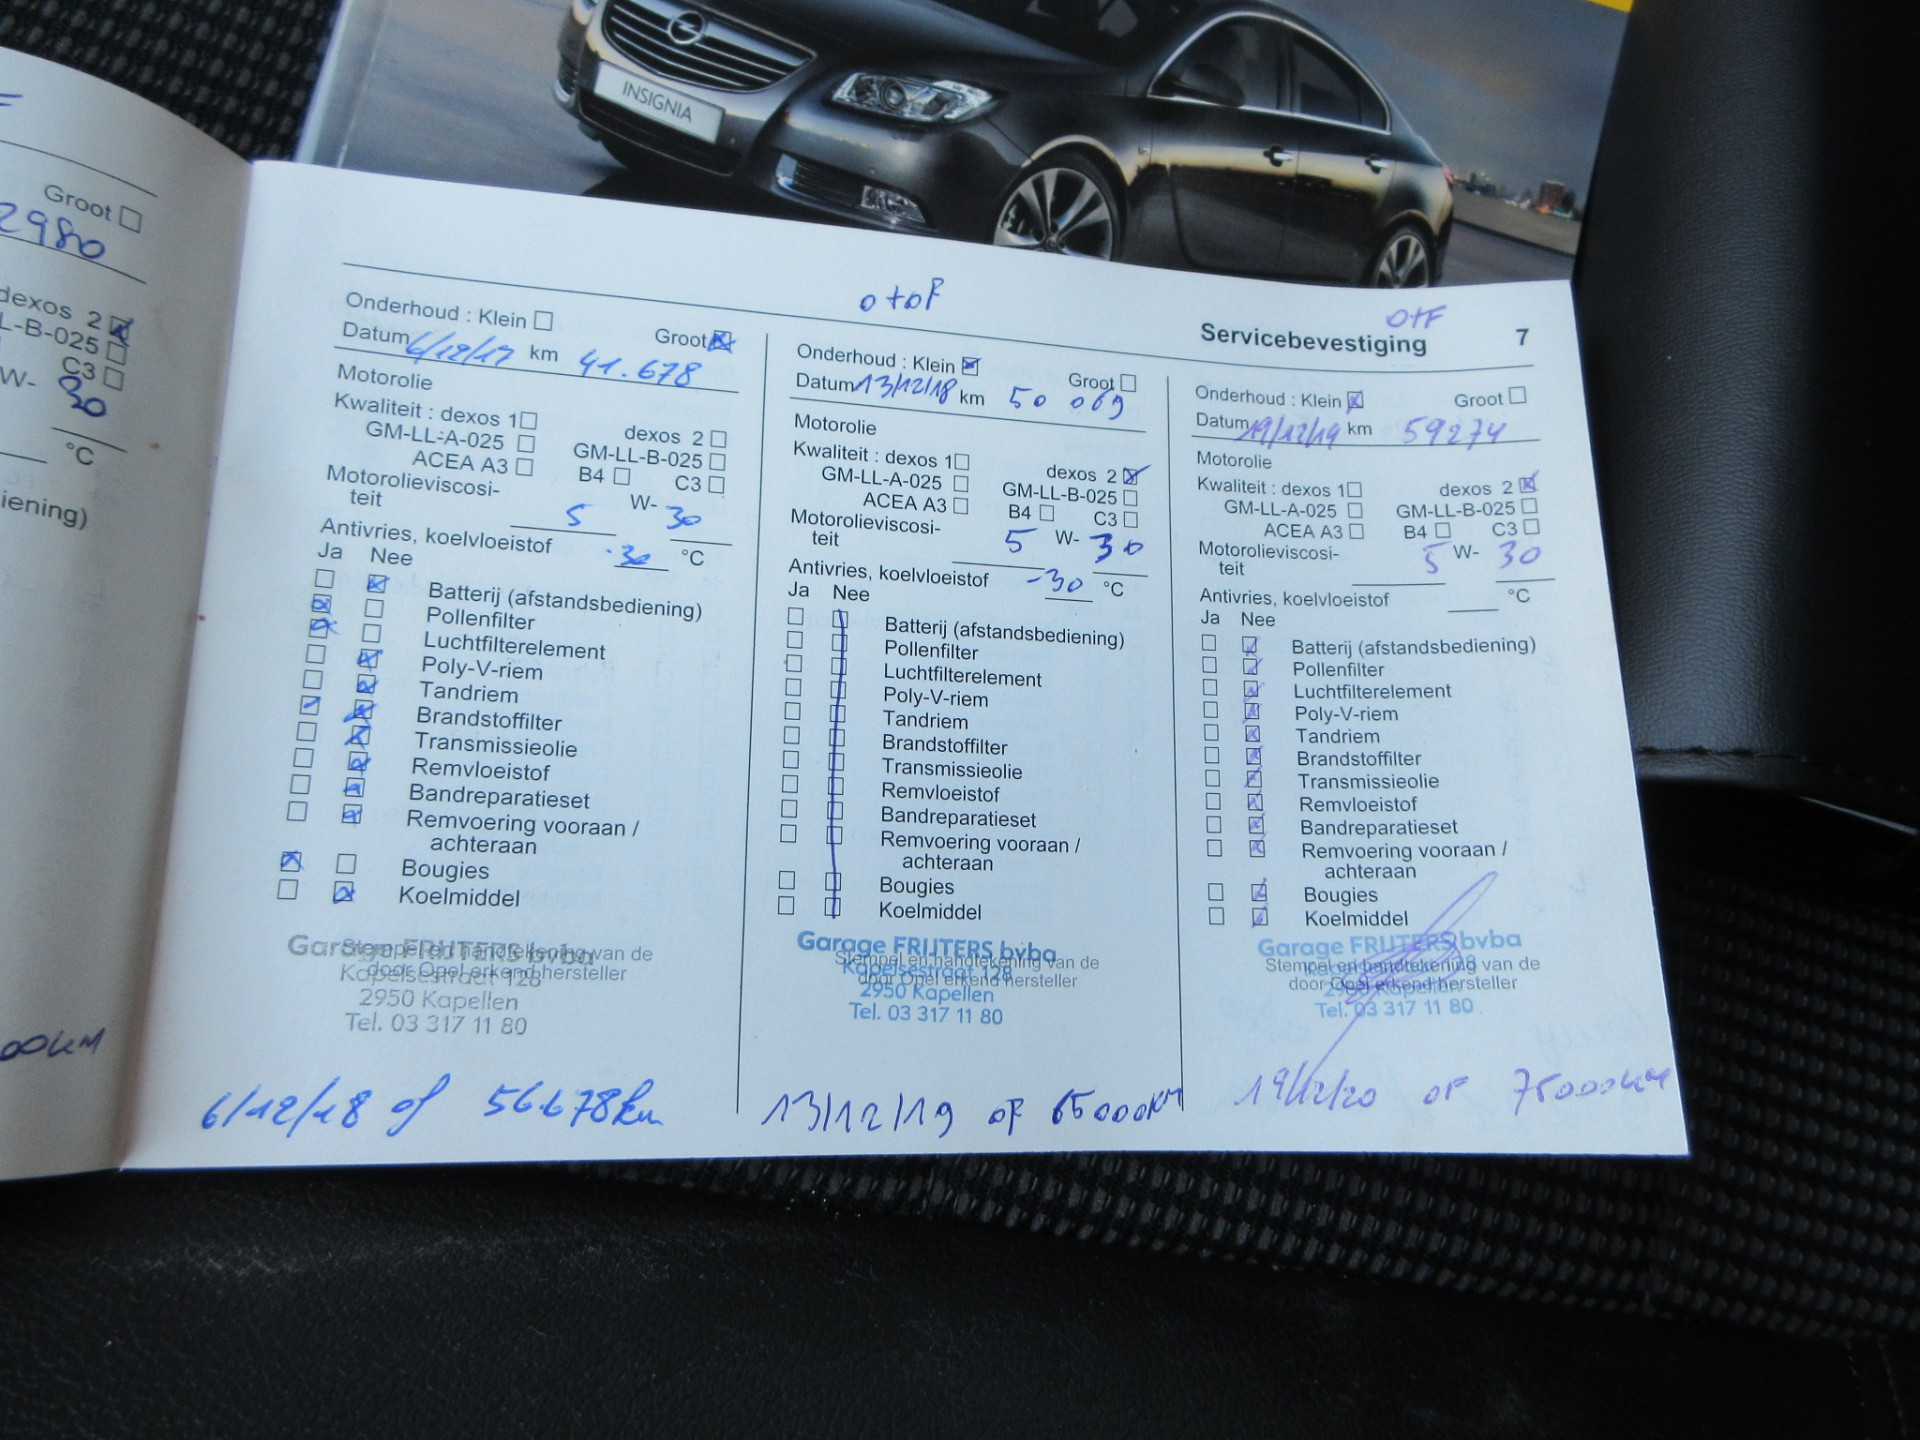 INSIGNIA
Groot
2980
dexos 2
LL-B-025
C3
W- 30
°C
iening)
00KM
Onderhoud : Klein Groot
Datum 6/12/17 km 41.678
Motorolie
Kwaliteit : dexos 1 dexos 2
GM-LL-A-025 GM-LL-B-025
ACEA A3 B4 C3
Motorolieviscosi-
teit 5 W- 30
Antivries, koelvloeistof -30 °C
Ja Nee
Batterij (afstandsbediening)
Pollenfilter
Luchtfilterelement
Poly-V-riem
Tandriem
Brandstoffilter
Transmissieolie
Remvloeistof
Bandreparatieset
Remvoering vooraan /
achteraan
Bougies
Koelmiddel
Garage FRIJTERS bvba
Stempel en handtekening van de
Kapelsestraat 128
door Opel erkend hersteller
2950 Kapellen
Tel. 03 317 11 80
6/12/18 of 56678km
o+oF
Onderhoud : Klein Groot
Datum 13/12/18 km 50 069
Motorolie
Kwaliteit : dexos 1 dexos 2
GM-LL-A-025 GM-LL-B-025
ACEA A3 B4 C3
Motorolieviscosi-
teit 5 W- 30
Antivries, koelvloeistof -30 °C
Ja Nee
Batterij (afstandsbediening)
Pollenfilter
Luchtfilterelement
Poly-V-riem
Tandriem
Brandstoffilter
Transmissieolie
Remvloeistof
Bandreparatieset
Remvoering vooraan /
achteraan
Bougies
Koelmiddel
Garage FRIJTERS bvba
Stempel en handtekening van de
Kapelsestraat 128
door Opel erkend hersteller
2950 Kapellen
Tel. 03 317 11 80
13/12/19 OF 65000KM
O+F
Servicebevestiging 7
Onderhoud : Klein Groot
Datum 19/12/19 km 59274
Motorolie
Kwaliteit : dexos 1 dexos 2
GM-LL-A-025 GM-LL-B-025
ACEA A3 B4 C3
Motorolieviscosi-
teit 5 W- 30
Antivries, koelvloeistof °C
Ja Nee
Batterij (afstandsbediening)
Pollenfilter
Luchtfilterelement
Poly-V-riem
Tandriem
Brandstoffilter
Transmissieolie
Remvloeistof
Bandreparatieset
Remvoering vooraan /
achteraan
Bougies
Koelmiddel
Garage FRIJTERS bvba
Stempel en handtekening van de
door Opel erkend hersteller
2950 Kapellen
Tel. 03 317 11 80
19/12/20 OF 75000KM